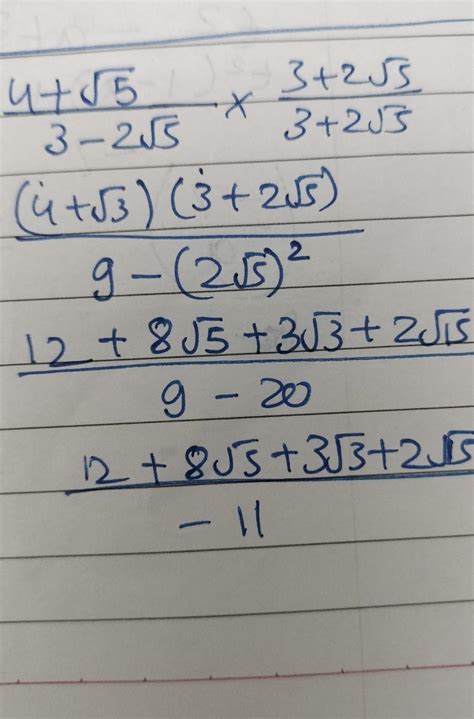 4+√5 / 3-2√5 × 3+2√5 / 3+2√5
(4+√3) (3+2√5) / 9-(2√5)²
12 + 8√5 + 3√3 + 2√15 / 9 - 20
12 + 8√5 + 3√3 + 2√15 / - 11